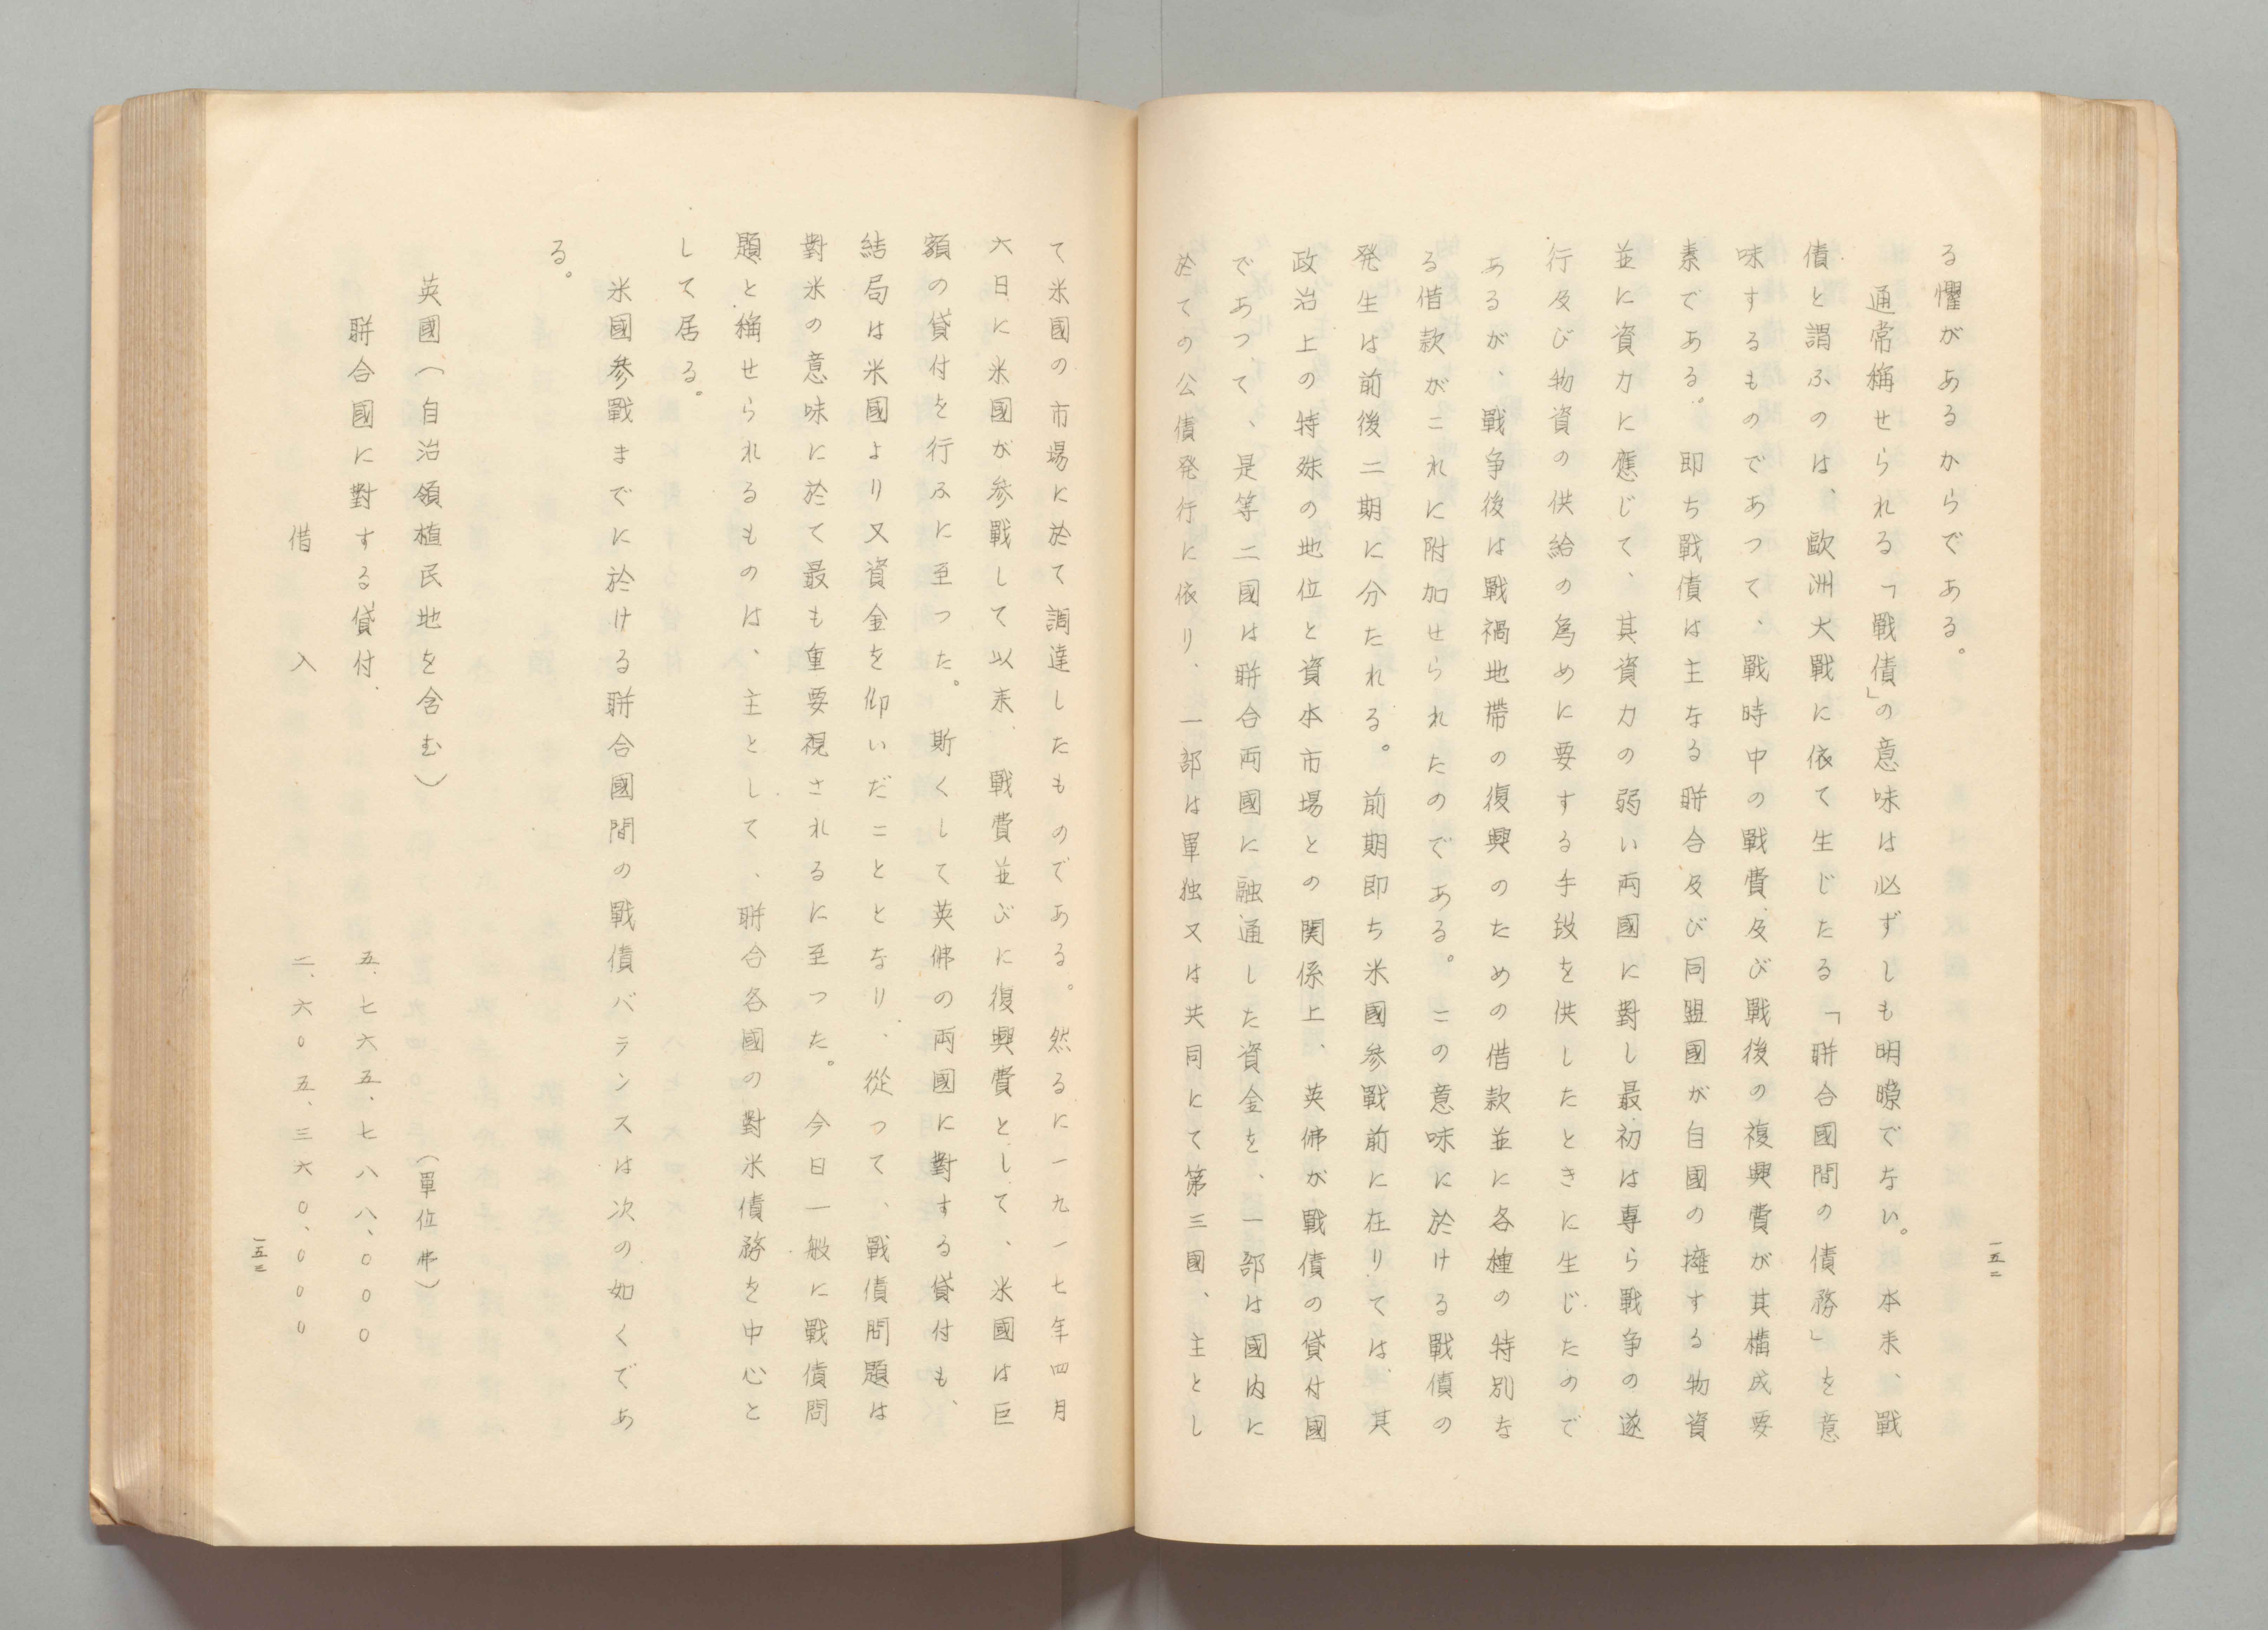 る懼があるからである。
通常稱せられる「戰債」の意味は必ずしも明瞭でない。本来、戰
債と謂ふのは、歐洲大戰に依て生じたる「聯合國間の債務」を意
味するものであつて、戰時中の戰費及び戰後の複興費が其構成要
素である。即ち戰債は主なる聯合及び同盟國が自國の擁する物資
並に資力に應じて、其資力の弱い両國に對し最初は専ら戰争の遂
行及び物資の供給の為めに要する手段を供したときに生じたので
あるが、戰争後は戰禍地帶の復興のための借款並に各種の特別な
る借款がこれに附加せられたのである。この意味に於ける戰債の
発生は前後二期に分たれる。前期即ち米國参戰前に在りては、其
政治上の特殊の地位と資本市場との関係上、英佛が戰債の貸付國
であつて、是等二國は聯合両國に融通した資金を、一部は國内に
於ての公債発行に依り、一部は單独又は共同にて第三國、主とし
一五二
て米國の市場に於て調達したものである。然るに一九一七年四月
六日に米國が参戰して以来、戰費並びに復興費として、米國は巨
額の貸付を行ふに至つた。斯くして英佛の両國に對する貸付も、
結局は米國より又資金を仰いだこととなり、從つて、戰債問題は
對米の意味に於て最も重要視されるに至つた。今日一般に戰債問
題と稱せられるものは、主として、聯合各國の對米債務を中心と
して居る。
米國参戰までに於ける聯合國間の戰債バランスは次の如くであ
る。
英國（自治領植民地を含む）　（單位弗）
聯合國に對する貸付　五、七六五、七八八、０００
借入　二、六０五、三六０、０００
一五三